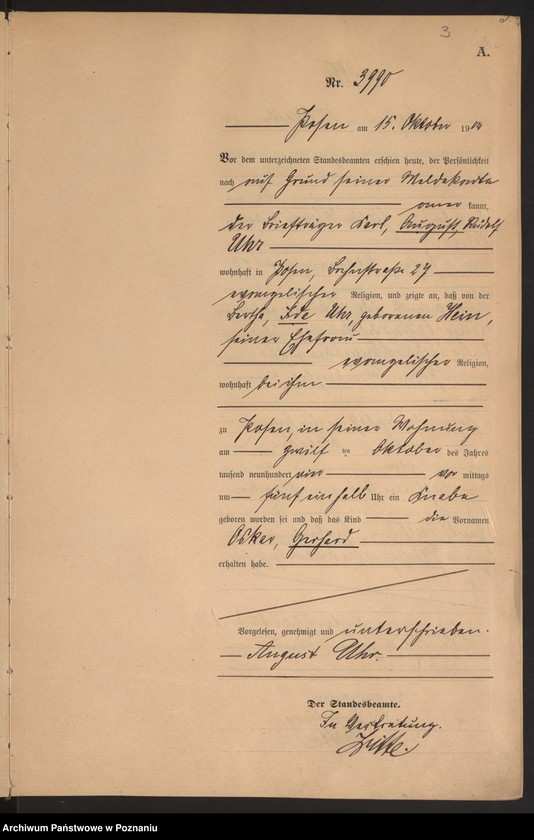 3
A.
Nr. 3990
Posen am 15. Oktober 19
Vor dem unterzeichneten Standesbeamten erschien heute, der Persönlichkeit
nach auf Grund seiner Meldekarte
aner kannt,
der Briefträger Karl, August, Rudolf
Uhr
wohnhaft in Posen,
evangelischer Religion, und zeigte an, daß von der
Bertha, Ida Uhr, geborenen Hein,
seiner Ehefrau
evangelischer Religion,
wohnhaft bei ihm
zu Posen, in seiner Wohnung
am zwölf ten Oktober des Jahres
tausend neunhundert vor mittags
um fünf einhalb Uhr ein Knabe
geboren worden sei und daß das Kind die Vornamen
Oskar, Gerhard
erhalten habe.
Vorgelesen, genehmigt und unterschrieben.
August Uhr.
Der Standesbeamte.
In Vertretung.
Archiwum Państwowe w Poznaniu